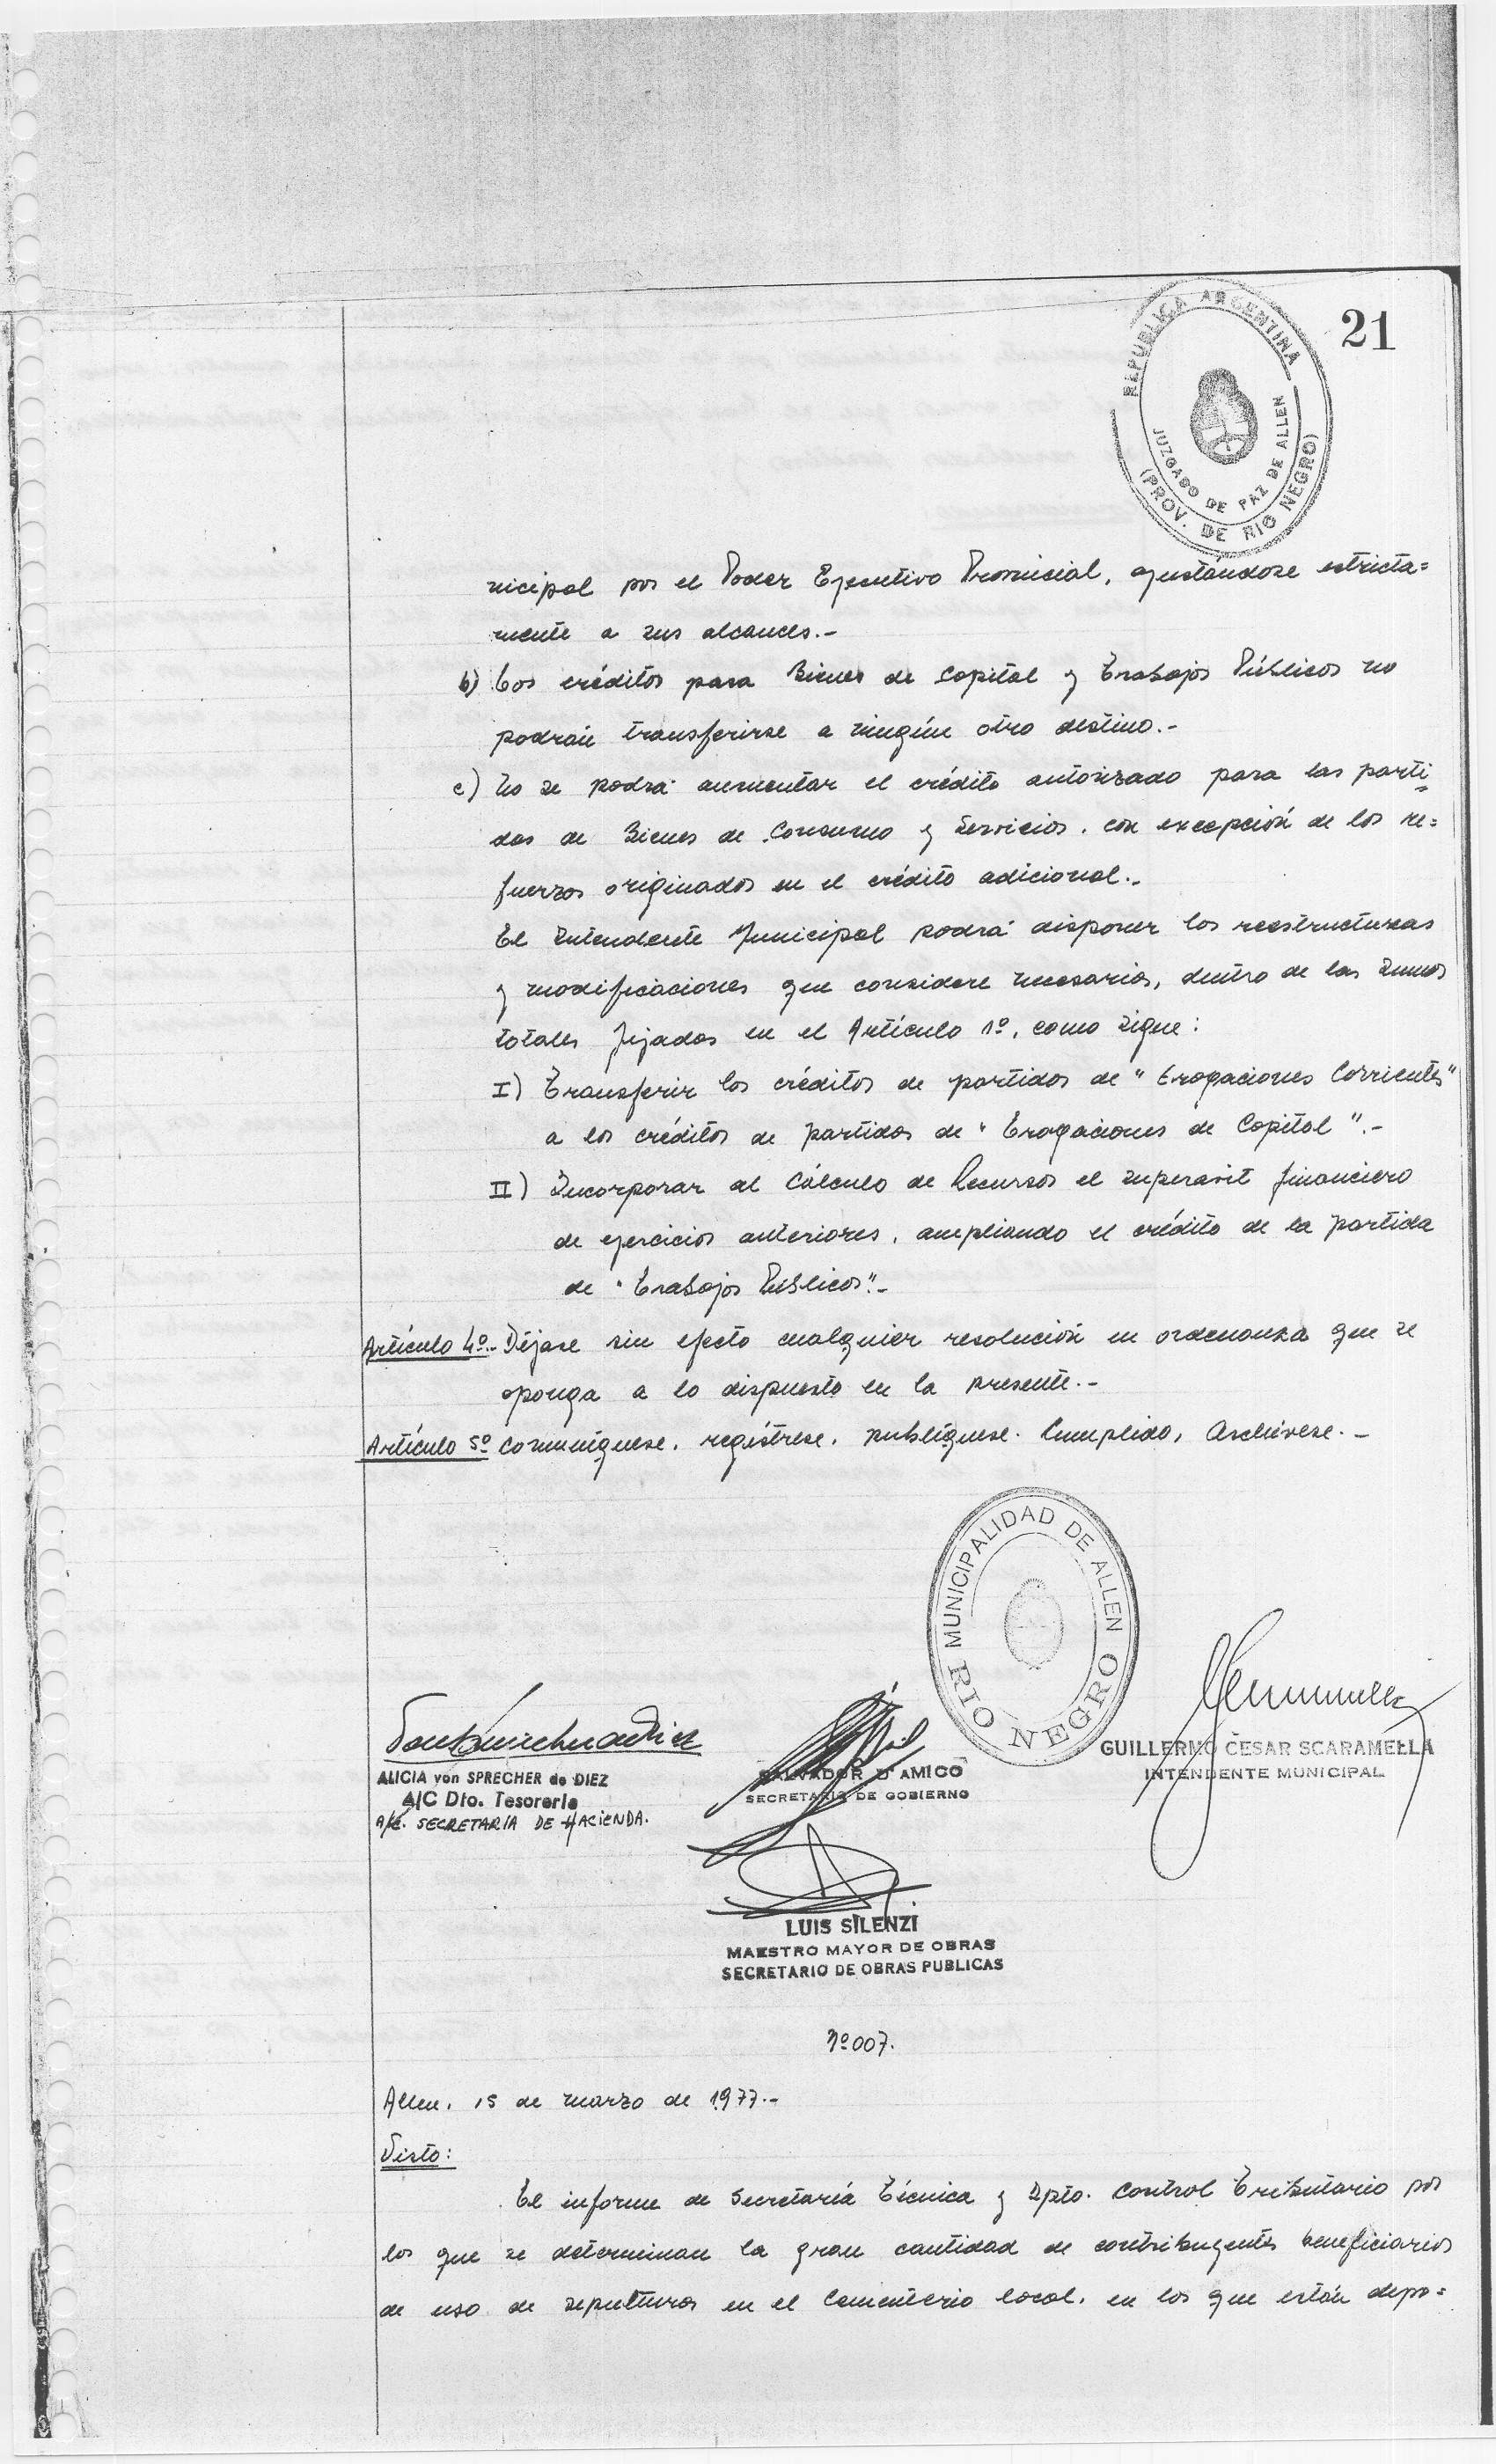 21
REPUBLICA ARGENTINA
JUZGADO DE PAZ DE ALLEN
(PROV. DE RIO NEGRO)
nicipal por el Poder Ejecutivo Provincial, ajustándose estricta=
mente a sus alcances.-
b) Los créditos para Bienes de Capital y Trabajos Públicos no
podrán transferirse a ningún otro destino.-
c) No se podrá aumentar el crédito autorizado para las parti
das de Bienes de Consumo y Servicios, con excepción de los re=
fuerzos originados en el crédito adicional.-
El Intendente Municipal podrá disponer las reestructuras
y modificaciones que considere necesarias, dentro de las sumas
totales fijadas en el Artículo 1º, como sigue:
I) Transferir los créditos de partidas de "Erogaciones Corrientes"
a los créditos de partidas de "Erogaciones de Capital".-
II) Incorporar al Cálculo de Recursos el superavit financiero
de ejercicios anteriores, ampliando el crédito de la partida
de "Trabajos Públicos".-
Artículo 4º.- Déjase sin efecto cualquier resolución en ordenanza que se
oponga a lo dispuesto en la presente.-
Artículo 5º Comuníquese, regístrese, publíquese. Cumplido, Archívese.-
MUNICIPALIDAD DE ALLEN
RIO NEGRO
ALICIA von SPRECHER de DIEZ
A/C Dto. Tesorería
A/C. SECRETARIA DE HACIENDA.
SALVADOR D'AMICO
SECRETARIO DE GOBIERNO
GUILLERMO CESAR SCARAMELLA
INTENDENTE MUNICIPAL
LUIS SILENZI
MAESTRO MAYOR DE OBRAS
SECRETARIO DE OBRAS PUBLICAS
Nº 007.
Allen, 15 de marzo de 1977.-
Visto:
El informe de Secretaría Técnica y Dpto. Control Tributario por
los que se determinan la gran cantidad de contribuyentes beneficiarios
de uso de sepulturas en el Cementerio local, en los que están depo=